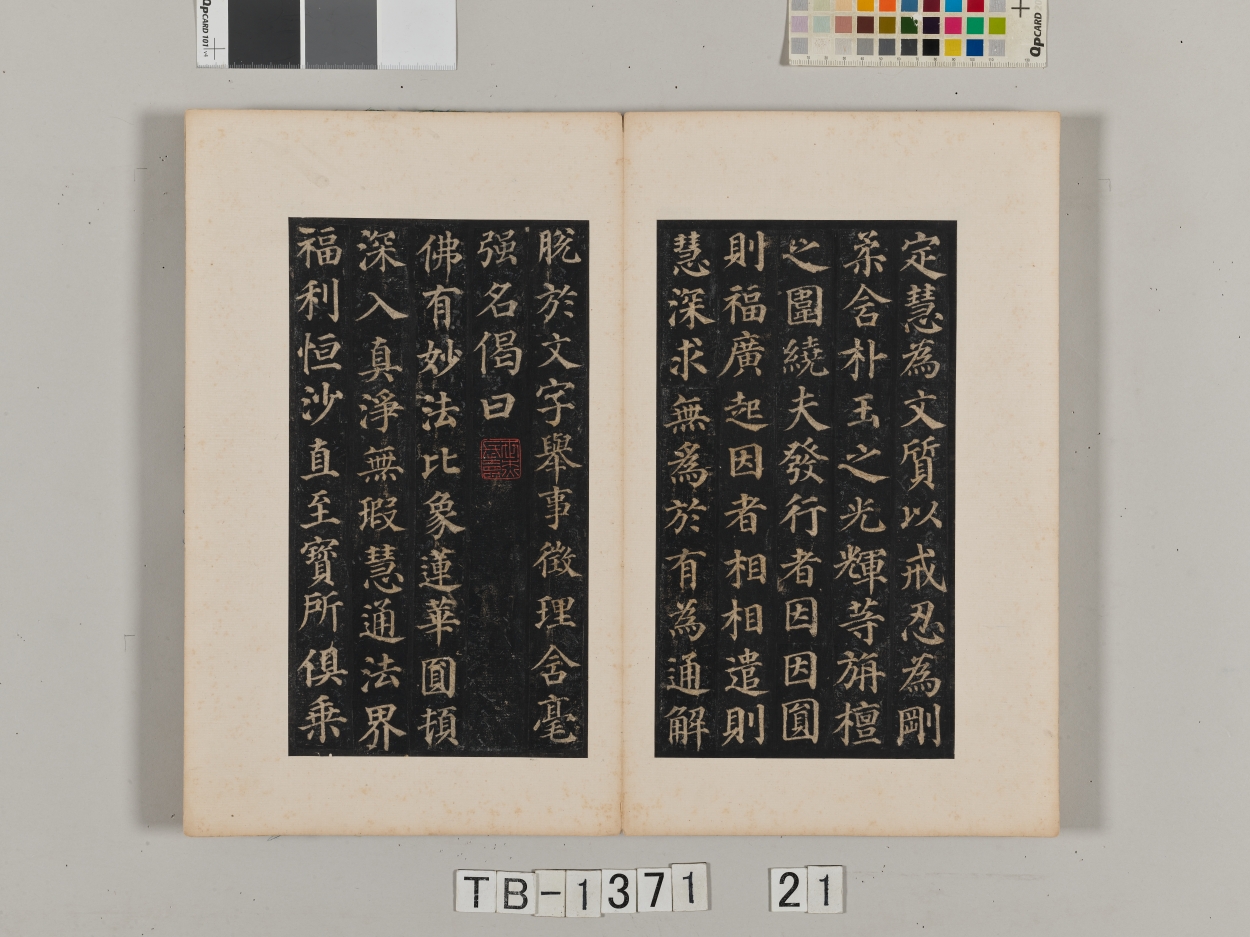 QpCARD 101 v4
QpCARD
定慧為文質以戒忍為剛
柔含朴玉之光輝等旃檀
之圍繞夫發行者因因圓
則福廣起因者相相遣則
慧深求無爲於有為通解
脫於文字舉事徵理含毫
强名偈曰
佛有妙法比象蓮華圓頓
深入真淨無瑕慧通法界
福利恒沙直至寶所俱乘
TB-1371 21